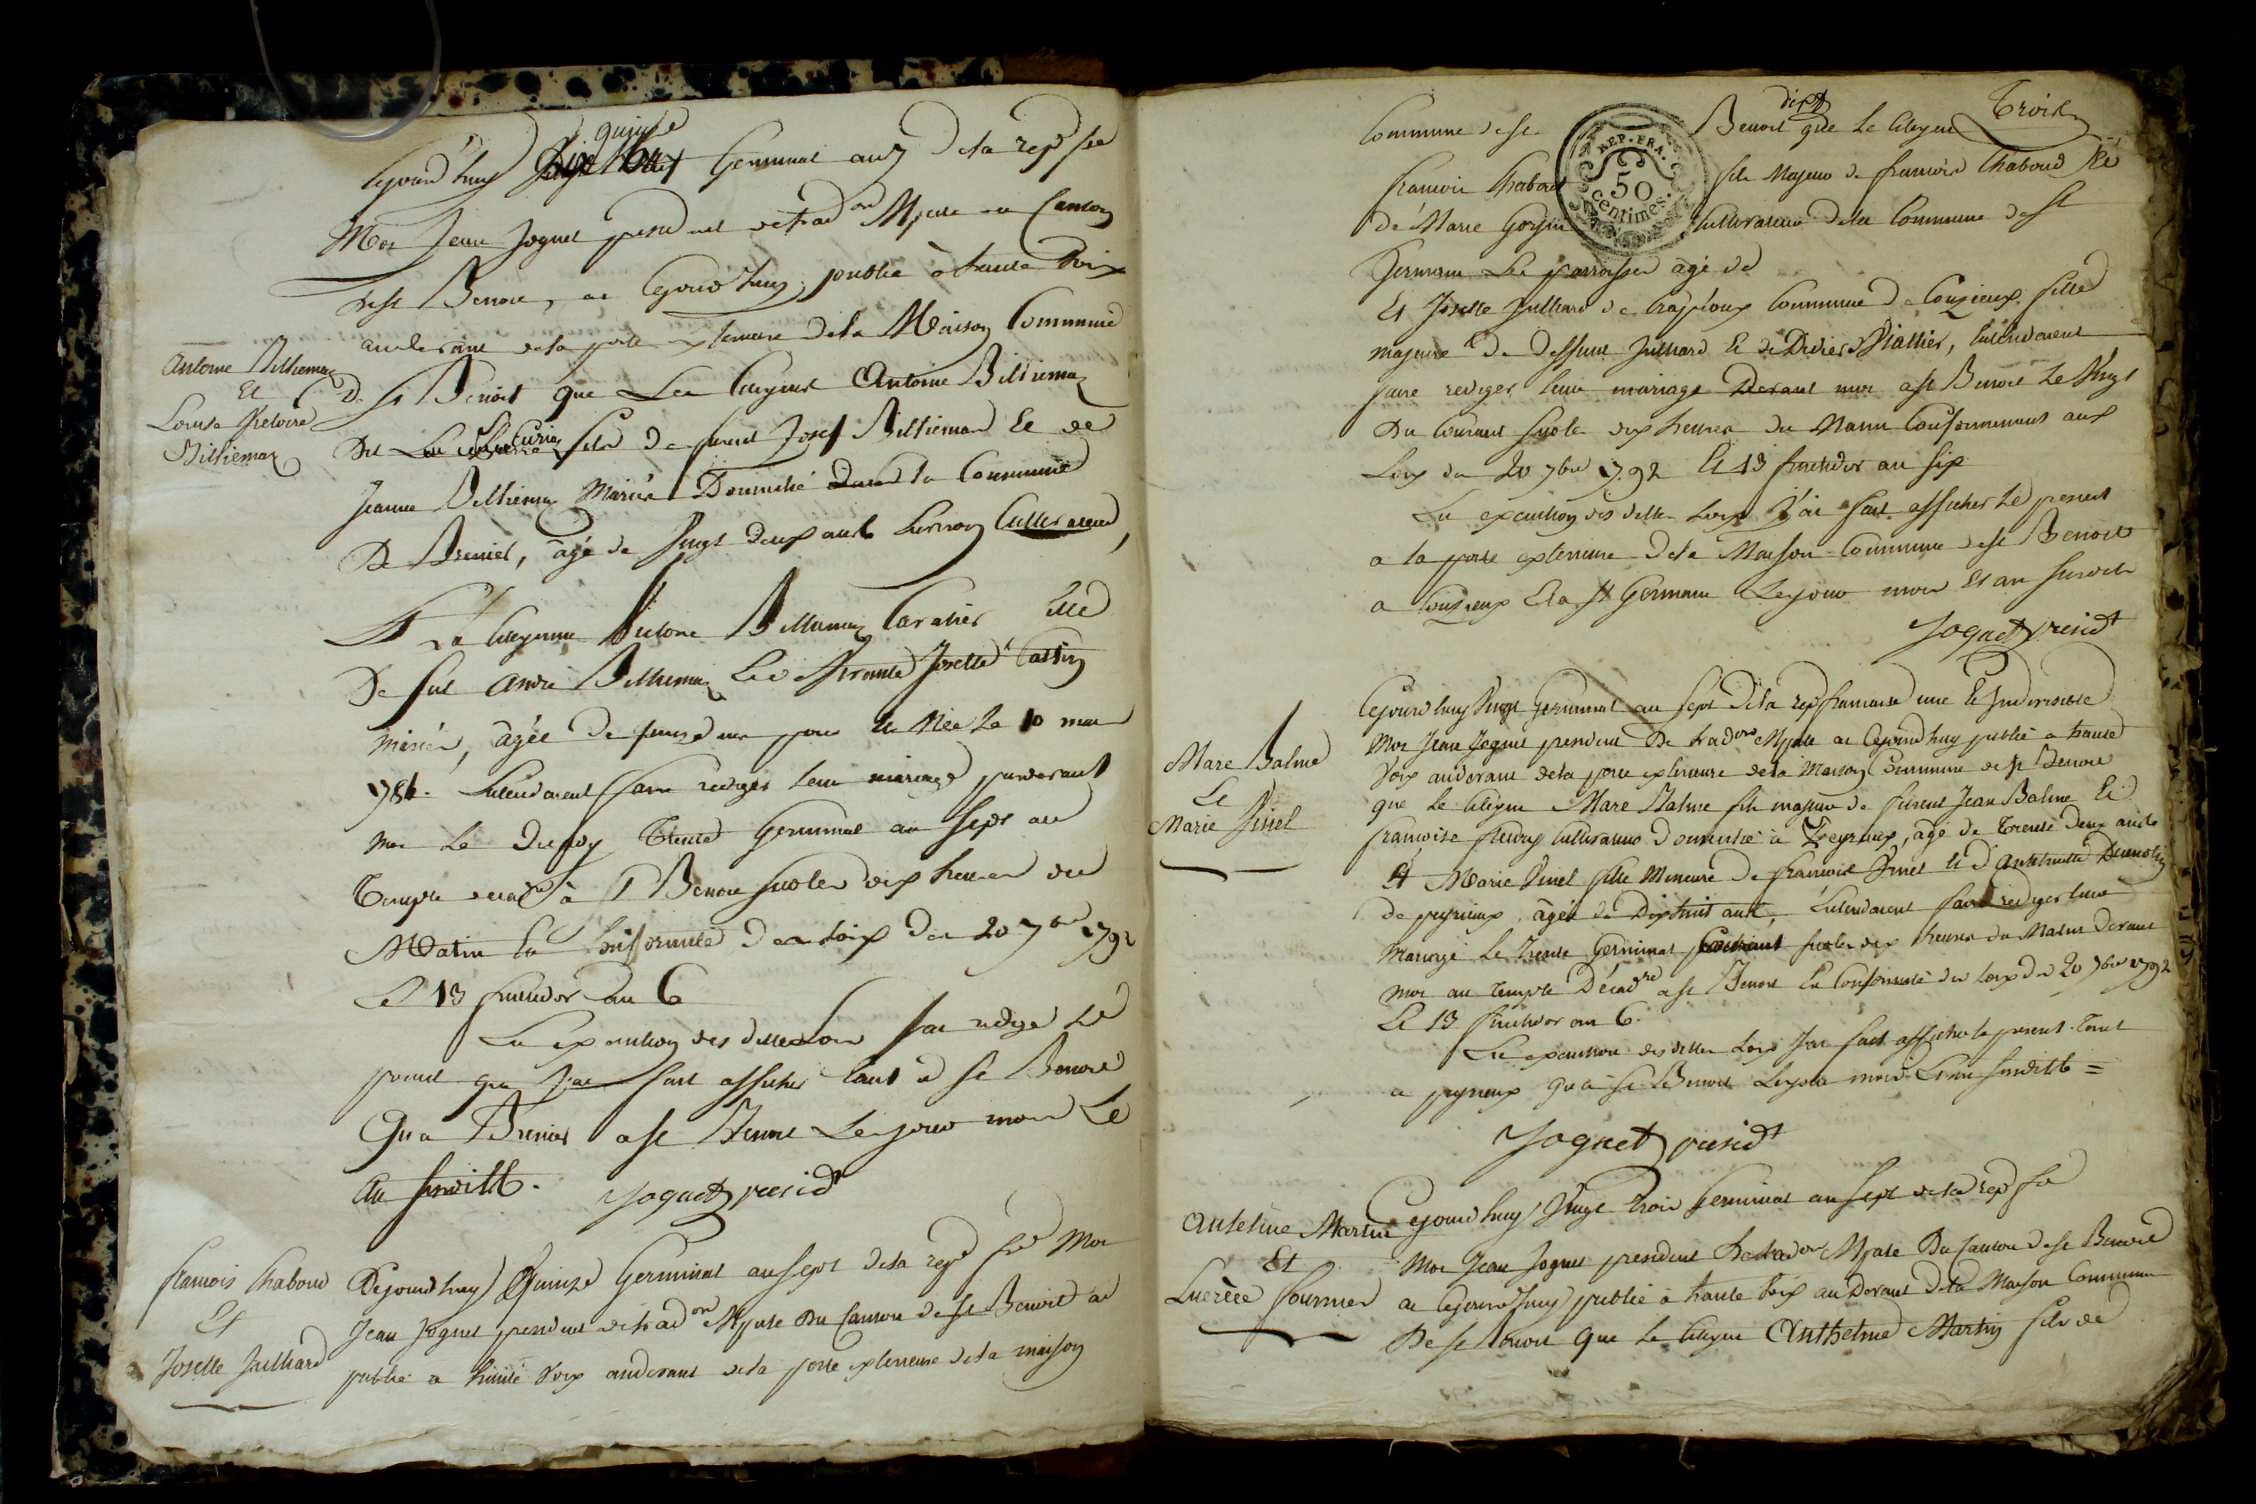 Antoine Billiemaz
Et
Louise Victoire
Billiemaz
Cejourd'huy quinze Germinal an 7 de la rep fse
Moi Jean Joguet presid ent de l'ad on Mpale du Canton
de St Benoit, ai Cejourd'huy publié à haute Voix
au devant de la porte exterieure de la Maison Commune
De St Benoit que Le Citoyen Antoine Billiemaz
Dit fils de feu Josef Billiemaz Et de
Jeanne Billiemaz Mariés Domicilié dans la Commune
De Breniel, âgé de Vingt deux ans Environ Cultivateur,
Et La Citoyenne Victoire Billiemaz fille
De feu André Billiemaz Et de Josette
mariés, âgée de pour etre Née Le 10 mars
1784. Entendaient faire rediger leur mariage pardevant
moi Le Trente Germinal an Sept au
Temple decad à St Benoit sur les dix heures du
Matin En Conformité des Loix des 20 7bre 1792
Et 13 fructidor an 6
En execution des dittes Loix J'ai redigé Le
present que J'ai fait afficher tant à St Benoit
Qu'a Brenier a St Benoit Les jour mois Et
An Susdits. Joguet presidt
francois Chaboud
Et
Josette Juilliard
Cejourd'huy Quinze Germinal an Sept de la rep fse Moi
Jean Joguet president de l'ad on Mpale Du Canton de St Benoit ai
publié a haute Voix au devant de la porte exterieure de la maison
Commune de St Benoit que Le Citoyen
REP. FRA.
50
centimes.
francois Chaboud fils Majeur de francois Chaboud Et
de Marie Cultivateur de la Commune de St
Germain Les paroisses âgé de
Et Josette Juilliard de Commune de Conzieux fille
majeure de Juilliard Et de , Entendaient
faire rediger leur mariage Devant moi a St Benoit Le Vingt
Du Courant sur les dix heures du Matin Conformement aux
Loix du 20 7bre 1792 Et 13 fructidor an six
En execution des dittes Loix J'ai fait afficher Le present
a la porte exterieure de la Maison Commune de St Benoit
a Conzieux Et a St Germain Les jour mois Et an susdits
Joguet presidt
Marc Balme
Et
Marie Pinel
Cejourd'huy Vingt Germinal an Sept de la rep francaise une Et Indivisible
Moi Jean Joguet president De l'ad on Mpale ai Cejourd'huy publié a haute
Voix au devant de la porte exterieure de la Maison Commune de St Benoit
que Le Citoyen Marc Balme fils majeur de feu Jean Balme Et
francoise fleury Cultivateur domicilié à Peyrieux, âgé de Trente Deux ans
Et Marie Pinel fille Mineure de francois Pinel Et d'Anthelmette
de peyrieux, âgée de Dixhuit ans, Entendaient faire rediger leur
Mariage Le trente Germinal Courant sur les dix heures du Matin Devant
moi au Temple Decadre a St Benoit En Conformité des Loix des 20 7bre 1792
Et 13 fructidor an 6.
En execution des dittes Loix J'ai fait afficher le present tant
a peyrieux qu'à St Benoit Les jour mois Et an susdits =
Joguet presidt
Antelme Martin
Et
Lucrèce fournier
Cejourd'huy Vingt trois Germinal an Sept de la rep fse
Moi Jean Joguet president De l'ad on Mpale Du Canton de St Benoit
ai Cejourd'huy publié à haute Voix au Devant de la Maison Commune
De St Benoit Que Le Citoyen Anthelme Martin fils de